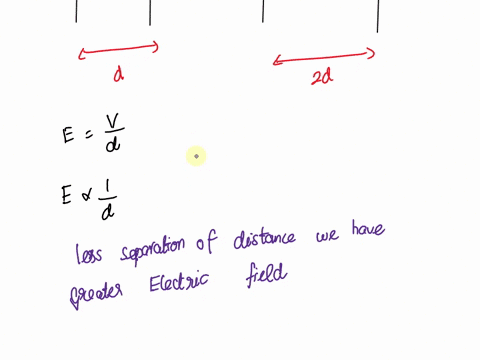 d
2d
E = V/d
E ∝ 1/d
less separation of distance we have
greater Electric field